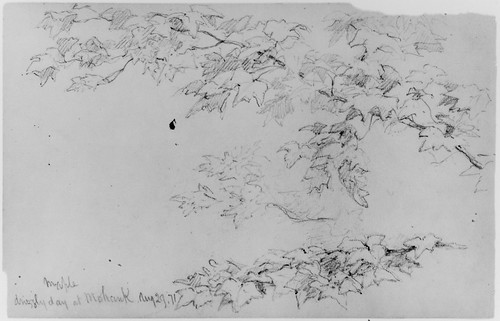 Maple
drizzly day at Mohawk Aug 29. 71